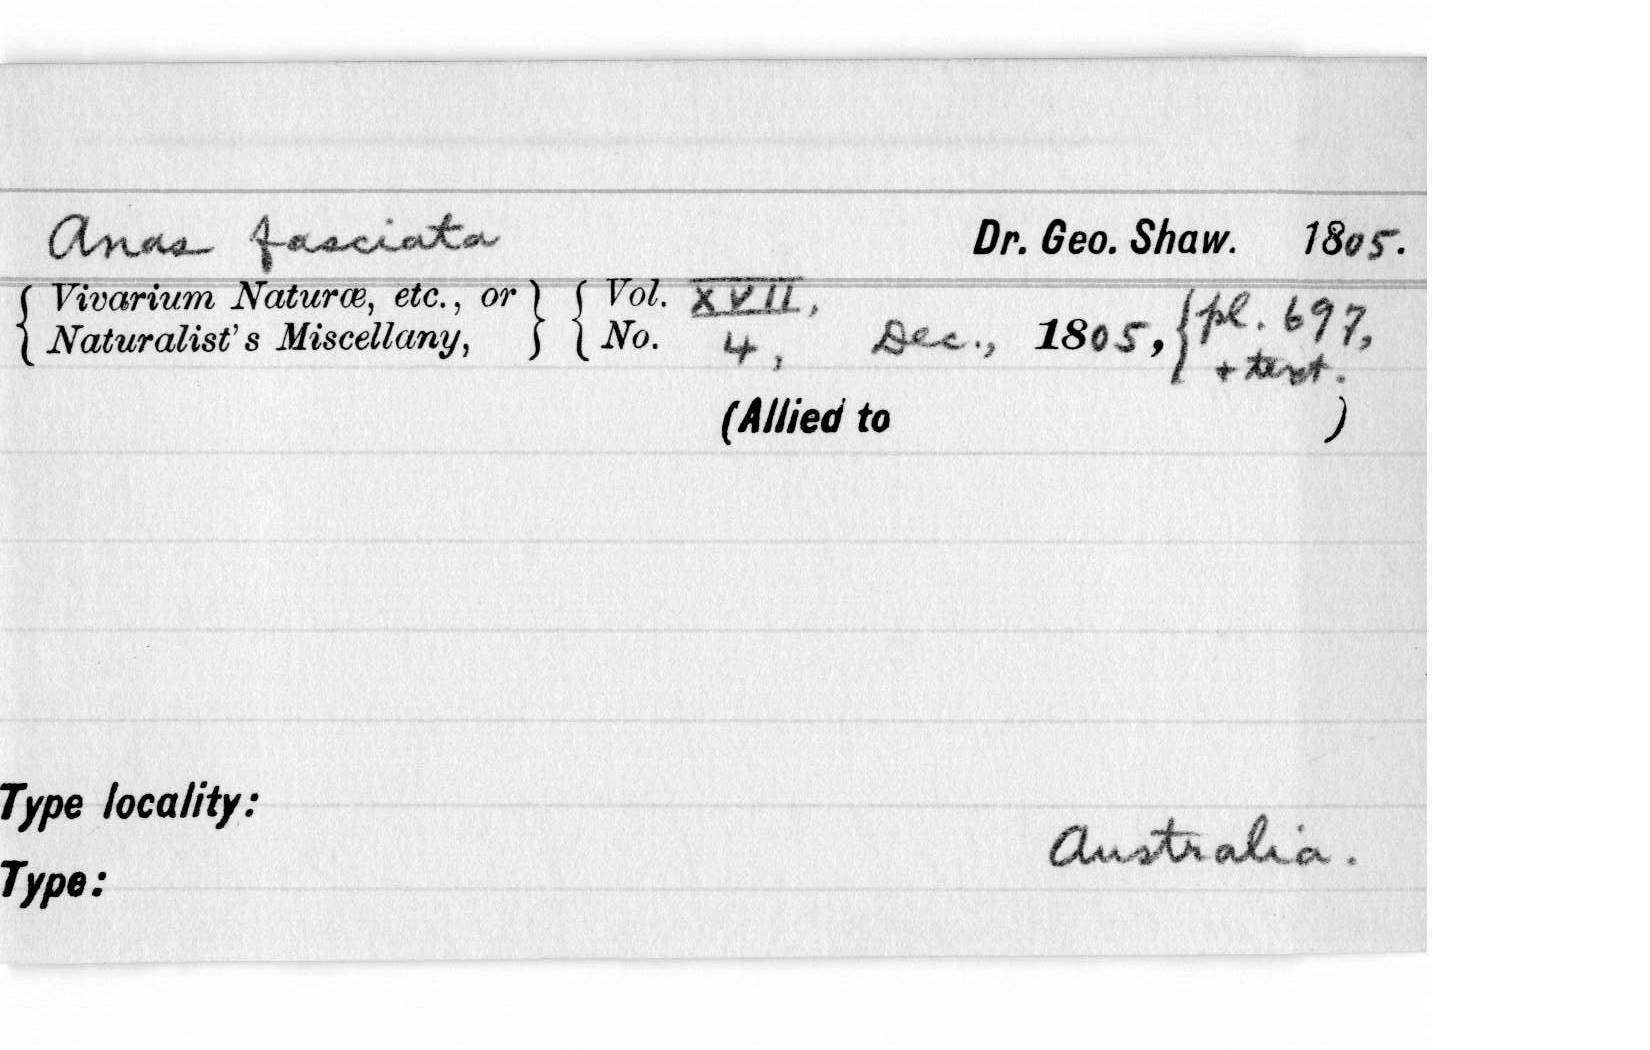 Anas fasciata Dr. Geo. Shaw. 1805.
{ Vivarium Naturæ, etc., or } { Vol. XVII,
{ Naturalist's Miscellany, } { No. 4, Dec., 1805, { pl. 697,
+ text.
(Allied to )
Type locality:
Australia.
Type: